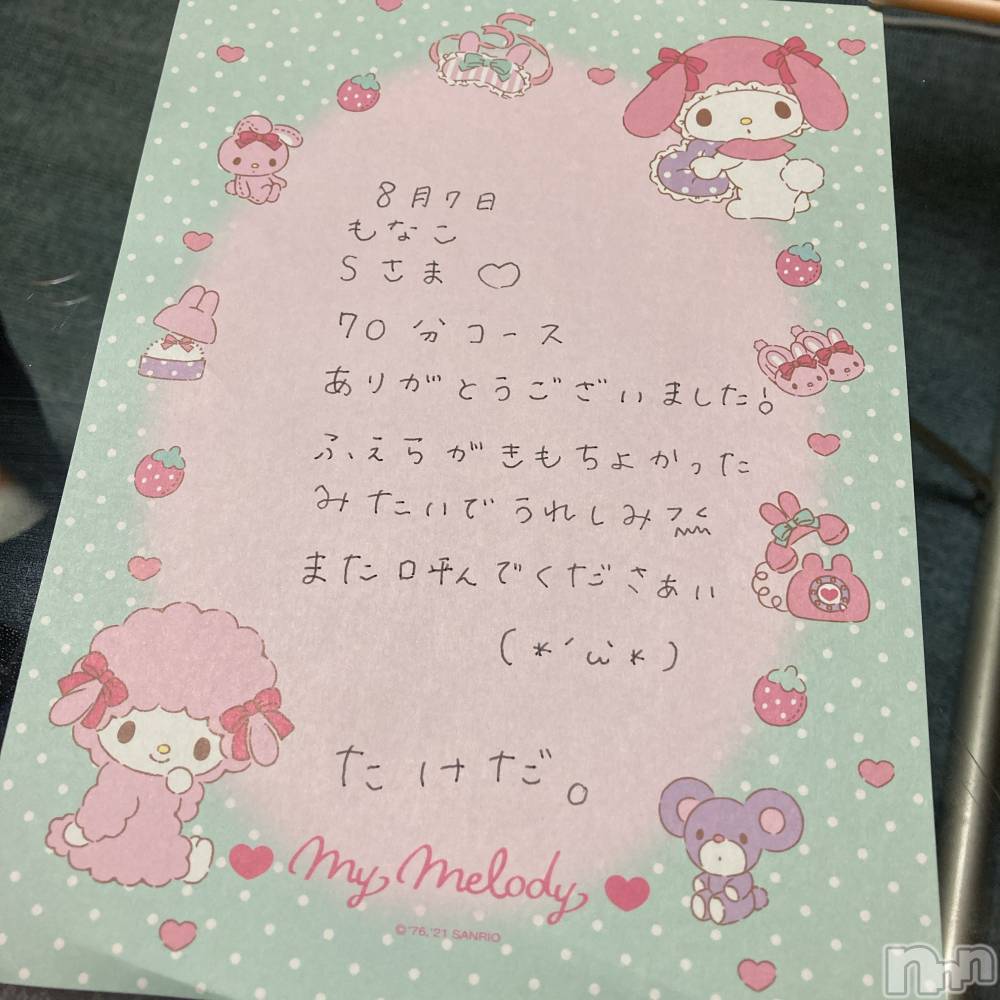 8月7日
もなこ
Sさま♡
70分コース
ありがとうございました!
ふぇらがきもちよかった
みたいでうれしみ
また呼んでくださぁい
(*´ω`*)
たけだ。
My Melody
©'76,'21 SANRIO
nnn